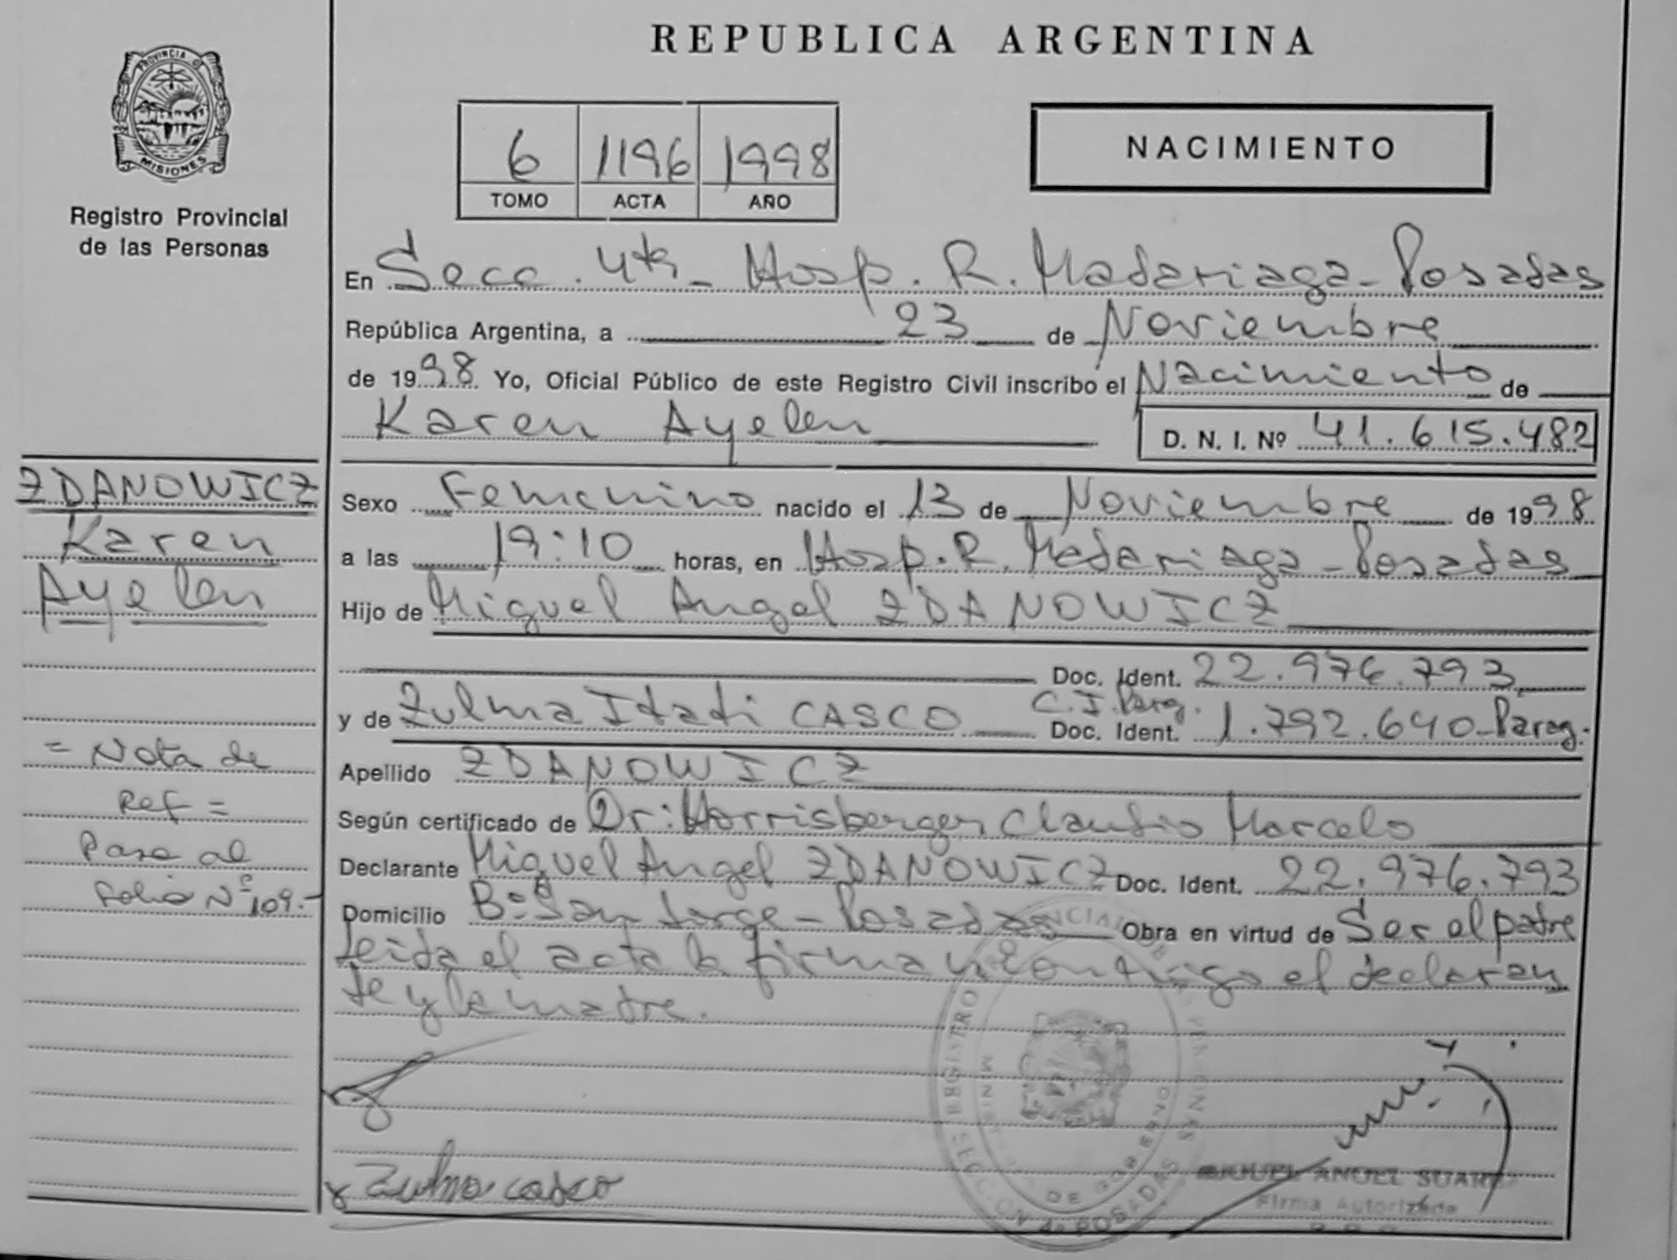 REPUBLICA ARGENTINA
PROVINCIA DE
MISIONES
Registro Provincial
de las Personas
6 1196 1998
TOMO ACTA AÑO
NACIMIENTO
En Secc. 4ta - Hosp. R. Madariaga - Posadas
República Argentina, a 23 de Noviembre
de 1998. Yo, Oficial Público de este Registro Civil inscribo el Nacimiento de
Karen Ayelen
D. N. I. Nº 41.615.482
ZDANOWICZ
Karen
Ayelen
Sexo Femenino nacido el 13 de Noviembre de 1998.
a las 19:10 horas, en Hosp. R. Madariaga - Posadas
Hijo de Miguel Angel ZDANOWICZ
Doc. Ident. 22.976.793
C.I. Parg.
y de Zulma Itati CASCO Doc. Ident. 1.792.640 - Parag.
Apellido ZDANOWICZ
Según certificado de Dr: Horrisberger Claudio Marcelo
Declarante Miguel Angel ZDANOWICZ Doc. Ident. 22.976.793
Domicilio Bº San Jorge - Posadas Obra en virtud de Ser el padre
leida el acta la firman conmigo el declaran
te y la madre.
= Nota de
Ref =
Pase al
Folio Nº 109.-
Zulma casco
REGISTRO PROVINCIAL DE PERSONAS
MINISTERIO DE GOBIERNO
SECCION 4a POSADAS
MIGUEL ANGEL SUAREZ
Firma Autorizada